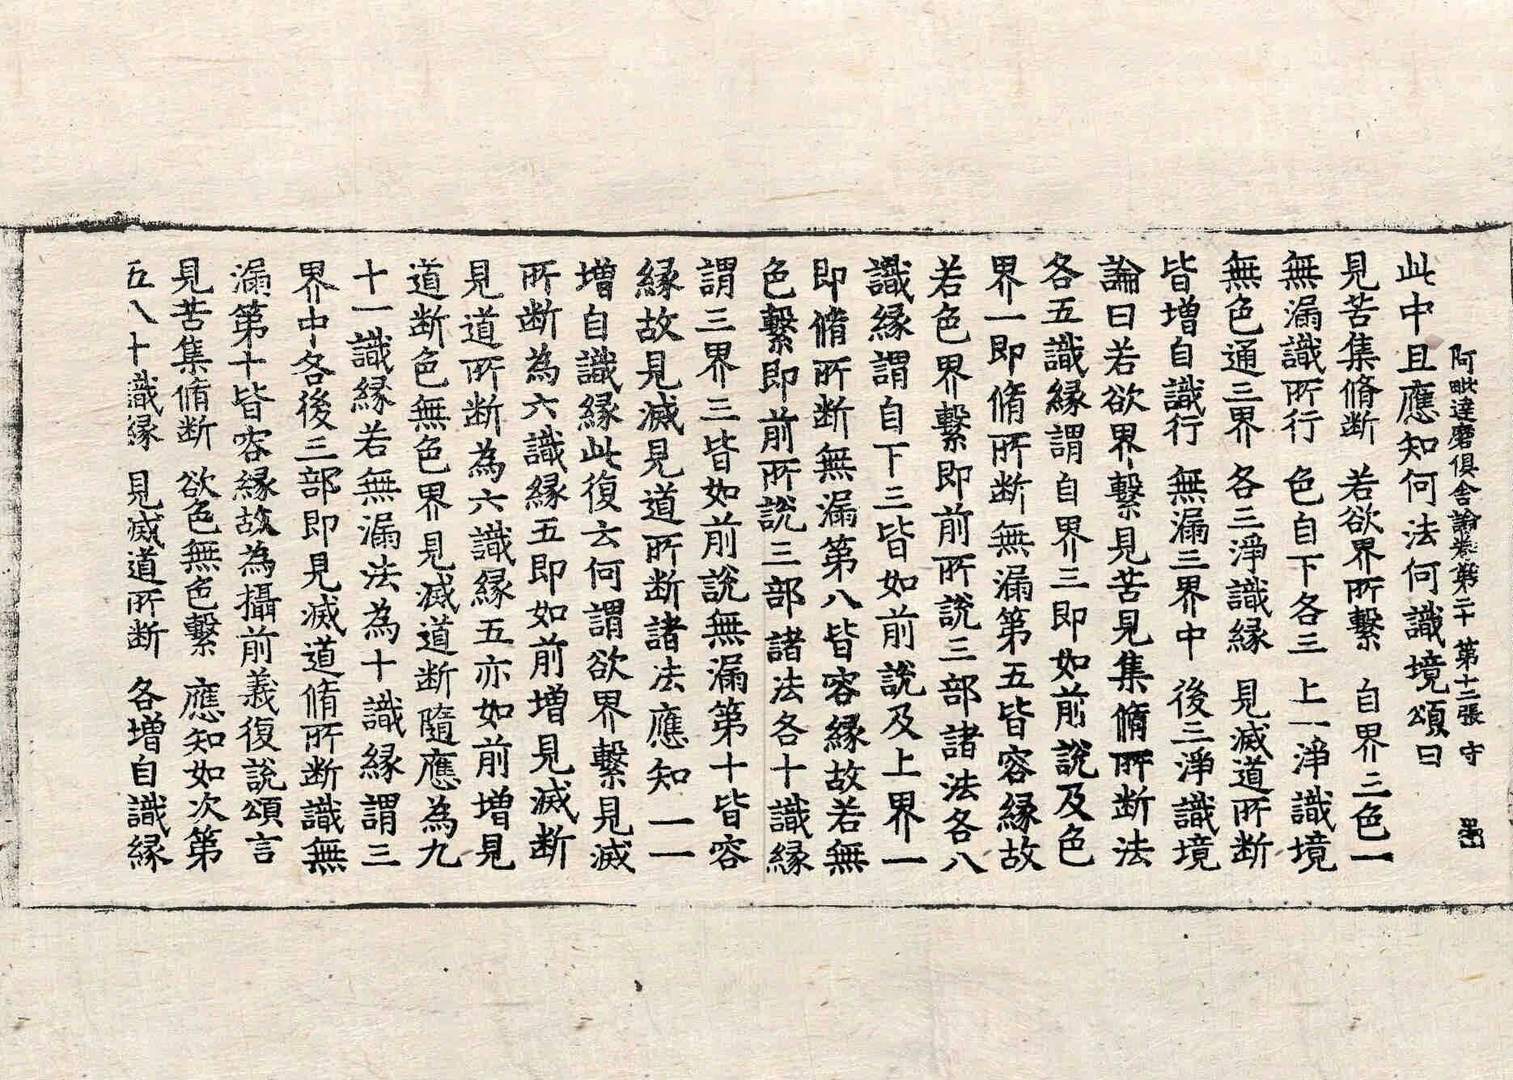 阿毗達磨俱舍論卷第二十 第十二張 守
此中且應知何法何識境頌曰
見苦集脩断 若欲界所繫 自界三色一
無漏識所行 色自下各三 上一淨識境
無色通三界 各三淨識緣 見滅道所断
皆增自識行 無漏三界中 後三淨識境
論曰若欲界繫見苦見集脩所断法
各五識緣謂自界三即如前說及色
界一即脩所断無漏第五皆容緣故
若色界繫即前所說三部諸法各八
識緣謂自下三皆如前說及上界一
即脩所断無漏第八皆容緣故若無
色繫即前所說三部諸法各十識緣
謂三界三皆如前說無漏第十皆容
緣故見滅見道所断諸法應知一一
增自識緣此復云何謂欲界繫見滅
所断為六識緣五即如前增見滅断
見道所断為六識緣五亦如前增見
道断色無色界見滅道断隨應為九
十一識緣若無漏法為十識緣謂三
界中各後三部即見滅道脩所断識無
漏第十皆容緣故為攝前義復說頌言
見苦集脩断 欲色無色繫 應知如次第
五八十識緣 見滅道所断 各增自識緣